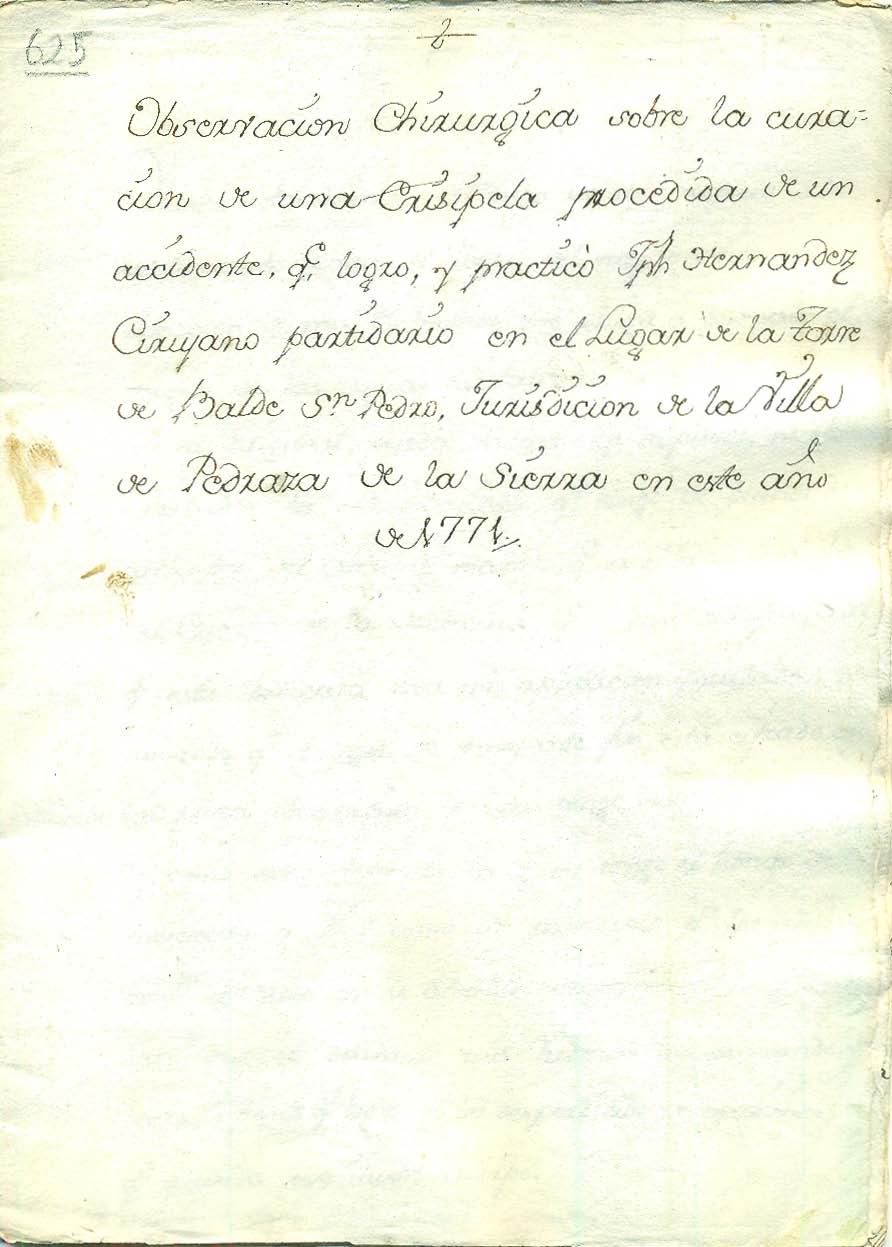 625
2
Observacion Chirurgica sobre la cura=
cion de una Erisipela procedida de un
accidente, q.e logro, y practicò Jph Hernandez
Cirujano partidario en el Lugar de la Torre
de Balde Sn Pedro, Jurisdicion de la Villa
de Pedraza de la Sierra en este año
de 1771.